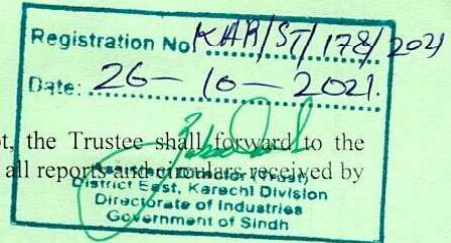 Registration No KAR/ST/178/2021
Date: 26-10-2021.
pt, the Trustee shall forward to the
all reports and circulars received by
Assistant Director (Trust)
District East, Karachi Division
Directorate of Industries
Government of Sindh